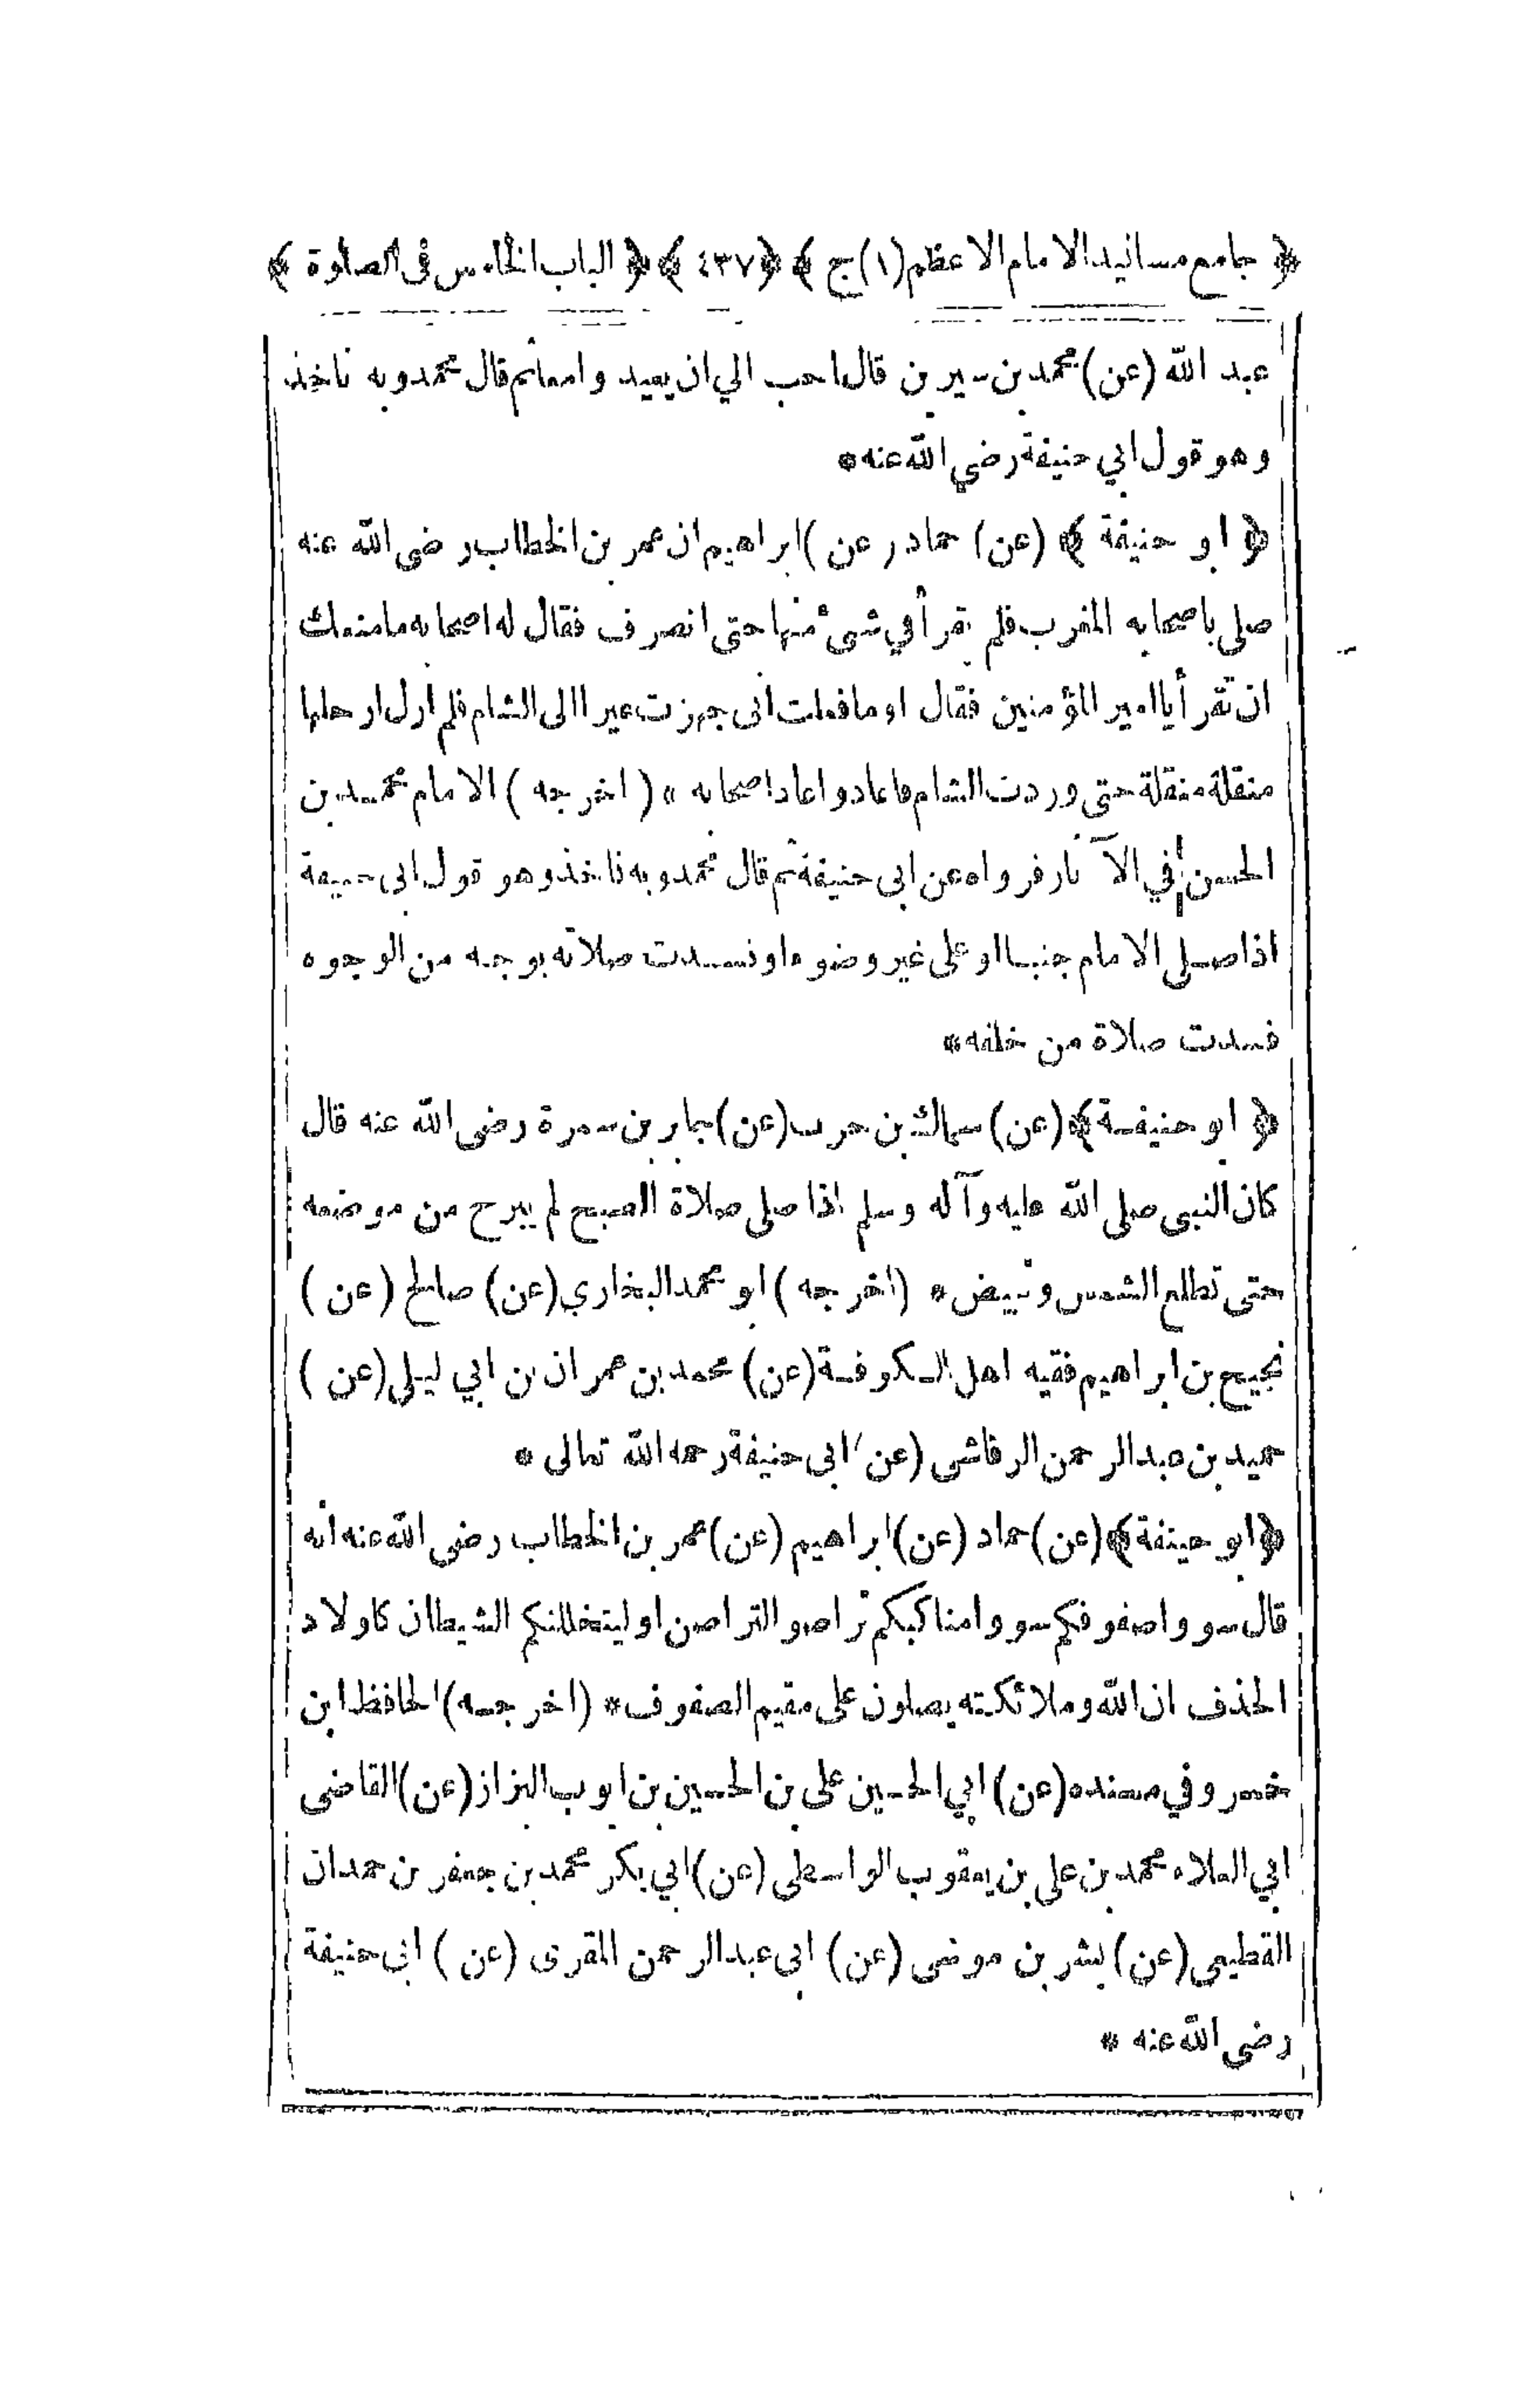 ﴿ جامع مسانيد الامام الاعظم (١) ج ﴾ ﴿ ٤٣٧ ﴾ ﴿ الباب الخامس فى الصلوة ﴾
عبد الله (عن) محمد بن سيرين قال احب الي ان يعيد وامعاثم قال محمد وبه ناخذ
وهو قول ابي حنيفة رضي الله عنه *
﴿ ابو حنيفة ﴾ (عن) حماد (عن) ابراهيم ان عمر بن الخطاب رضى الله عنه
صلى باصحابه المغرب فلم يقرأ في شئ منها حتى انصرف فقال له اصحابه ما منعك
ان تقرأ يا امير المؤمنين فقال او ما فعلت انى جهزت عيرا الى الشام فلم ازل ارحلها
منقلة منقلة حتى وردت الشام فاعاد واعاد اصحابه * (اخرجه) الامام محمد بن
الحسن في الآثار فرواه عن ابى حنيفة ثم قال محمد وبه ناخذ وهو قول ابى حنيفة
اذا صلى الامام جنبا او على غير وضوء او فسدت صلاته بوجه من الوجوه
فسدت صلاة من خلفه *
﴿ ابو حنيفة ﴾ (عن) سماك بن حرب (عن) جابر بن سمرة رضى الله عنه قال
كان النبى صلى الله عليه وآله وسلم اذا صلى صلاة الصبح لم يبرح من موضعه
حتى تطلع الشمس وتبيض * (اخرجه) ابو محمد البخاري (عن) صالح (عن)
نجيح بن ابراهيم فقيه اهل الكوفة (عن) محمد بن عمران بن ابي ليلى (عن)
حميد بن عبد الرحمن الرقاشى (عن) ابى حنيفة رحمه الله تعالى *
﴿ ابو حينفة ﴾ (عن) حماد (عن) ابراهيم (عن) عمر بن الخطاب رضى الله عنه انه
قال سووا صفوفكم سووا مناكبكم تراصوا لتراصن او ليتخللنكم الشيطان كاولاد
الحذف ان الله وملائكته يصلون على مقيم الصفوف * (اخرجه) الحافظ ابن
خسرو في مسنده (عن) ابي الحسين على بن الحسين بن ايوب البزاز (عن) القاضى
ابي العلاء محمد بن على بن يعقوب الواسطى (عن) ابي بكر محمد بن جعفر بن حمدان
القطيعى (عن) بشر بن موسى (عن) ابى عبد الرحمن المقرى (عن) ابى حنيفة
رضى الله عنه *